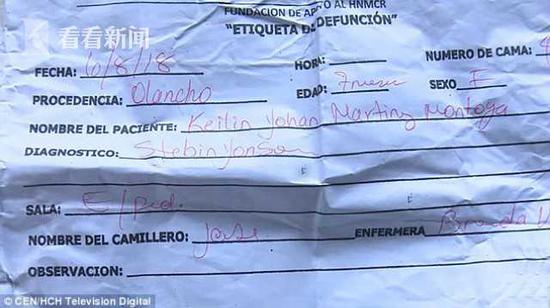 看看新闻
FUNDACION DE AP TO AL HNMCR
"ETIQUETA D DEFUNCIÓN"
FECHA: 6/8/18 HORA: NUMERO DE CAMA:
PROCEDENCIA: Olancho EDAD: 7 SEXO: F
NOMBRE DEL PACIENTE: Keilin Johan Martinz Montoya
DIAGNOSTICO: Stebin Yonson
SALA: E/Ped.
NOMBRE DEL CAMILLERO: Jose ENFERMERA Brenda
OBSERVACION:
© CEN/HCH Television Digital